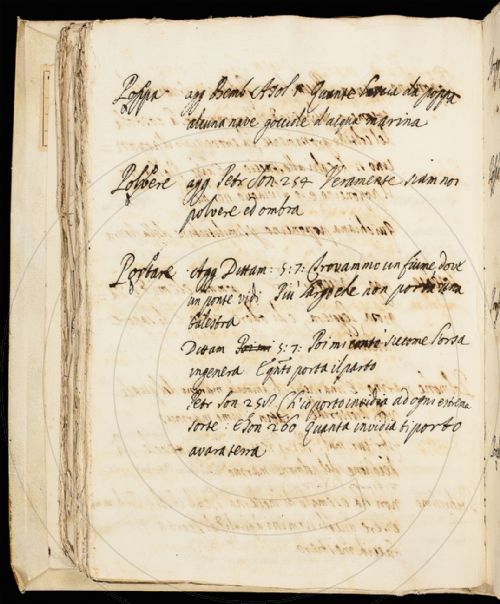 Poppa agg Bemb Asol 1 Quante lascia da poppa
alcuna nave gocciole d'acqua marina
Polvere agg Petr Son 254 Veramente siam noi
polvere ed ombra
Portare Agg Dittam: 5: 7: Trovammo un fiume dove
un ponte vidi Più largo che non porta una
balestra
Dittam Poi mi 5: 7: Poi mi contò siccome l'orsa
ingenera E quanto porta il parto
Petr Son 258 Ch'io porto invidia ad ogni estrema
sorte: e Son 260 Quanta invidia ti porto
avara terra